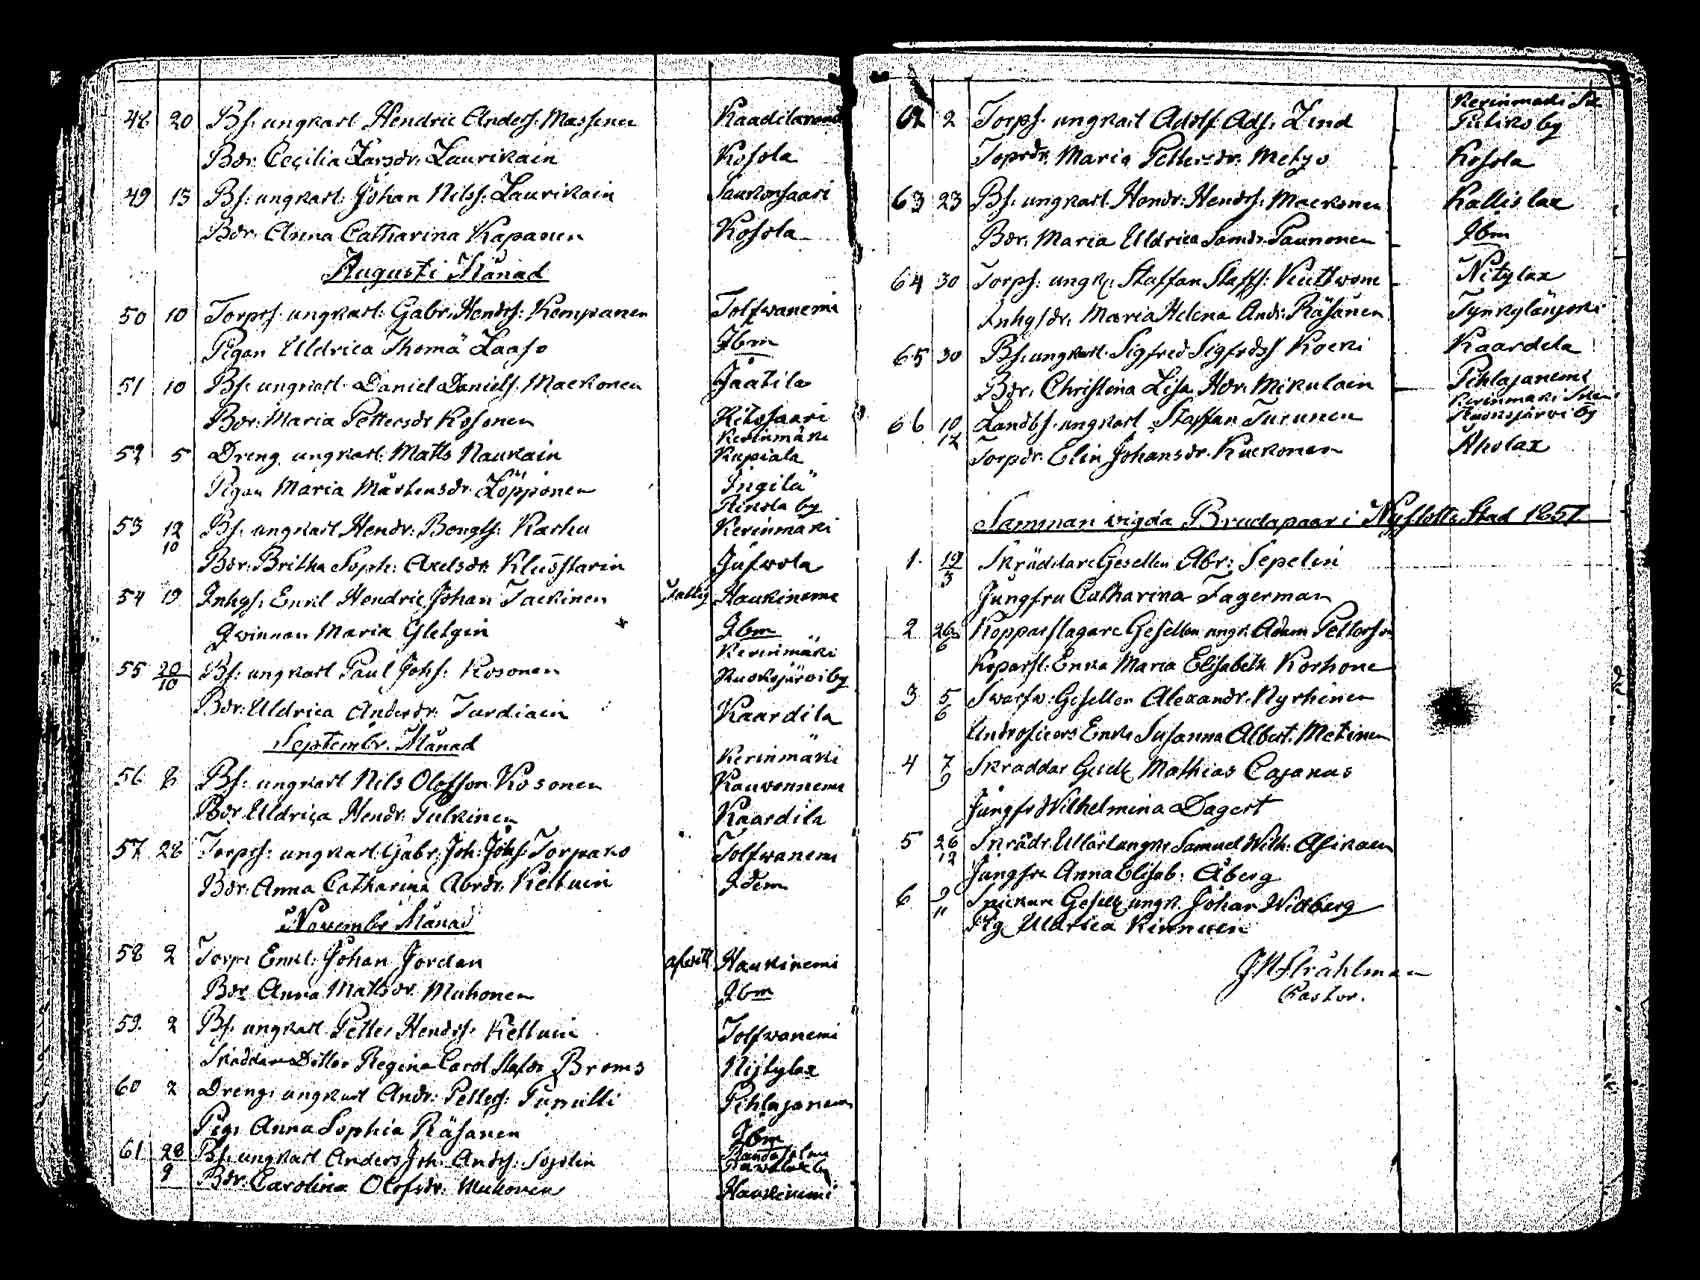 48 20 Bs: ungkarl Hendric Anders: Massinen Kaadilarand
Bdr: Cecilia Larsdr. Laurikain Kosola
49 15 Bs: ungkarl: Johan Nilss: Laurikain Saukonsaari
Bdr: Anna Catharina Kapanen Kosola
Augusti Månad
50 10 Torps: ungkarl: Gabr: Hendrs: Kempanen Tolfwanemi
Pigan Uldrica Thomä Laaso Ibm
51 10 Bs: ungkarl: Daniel Daniels: Mackonen Jäätila
Bdr: Maria Pettersdr Kosonen Kitosaari
Kerinmäki
52 5 Dreng ungkarl: Matts Naukain Kupiala
Pigan Maria Mårtensdr. Löppönen Ingilä
Rikola by
53 12/10 Bs: ungkarl Hendr: Bengts: Karhu Kerinmäki
Bdr: Britha Soph: Axelsdr. Kliustarin Jufwola
54 19 Inhys: Enkl Hendric Johan Tackinen Haukinemi
Qwinnan Maria Gletgin Ibm
Kerinmäki
55 20/10 Bs: ungkarl Paul Johs: Kosonen Ruoksjärvi by
Bdr: Uldrica Andersdr. Turdiain Kaardila
Septembr. Månad
Kerinmäki
56 8 Bs: ungkarl Nils Olofsson Kosonen Kauvonnemi
Bdr Uldrica Hendr. Pulkinen Kaardila
57 28 Torps: ungkarl: Gabr: Joh: Johs: Torpako Tolfwanemi
Bdr: Anna Catharina Abrdr. Kettuin Idem
Novembr Månad
58 2 Torp: Enkl: Johan Jordan Haukinemi
Bdr Anna Matsdr. Muhonen Ibm
59. 2 Bs: ungkarl Petter Hendrs: Kettuin Tolfwanemi
Skräddare Dotter Regina Carol Broms Nijtylax
60 2 Dreng: ungkarl Andr: Petters: Pihlajanemi
Pig: Anna Sophia Räsänen Ibm
61 28/9 Bs: ungkarl Anders Joh: Anders: Sojolin
Bdr: Carolina Olofsdr. Muhonen Haukinemi
Kerinmäki Sn
62 2 Torps: ungkarl Adolf Ads: Lind Pulikos by
Toprdr. Maria Pettersdr. Metzo Kosola
63 23 Bs: ungkarl. Hendr: Hendrs: Mackonen Kallislax
Bdr. Maria Uldrica Samdr. Paunonen Ibm
64 30 Torps: ungk: Staffan Staffs: Kuttwom Nitylax
Inhysdr. Maria Helena Andr: Räsänen
65 30 Bs: ungkarl. Sigfred Sigfrds Kocki Kaardela
Bdr. Christina Lisa Hdr. Mikulain Pihlajanemi
Kerinmäki
66 10/12 Landbs: ungkarl Staffan Turunen Ruoksjärvi by
Torpdr. Elin Johansdr. Kuckonen Aholax
Samman vigda Brudapaar i Nyslotts Stad 1857
1. 19/3 Skräddare Gesellen Abr: Sepelin
Jungfru Catharina Fagerman
2 26/6 Kopparslagare Gesellen ungk. Adam Petterson
Koparsl: Enka Maria Elisabeth Korhone
3 5/6 Swarfw: Gesellen Alexandr. Nyrhinen
Undrofficers Enka Susanna Albert. Metinen
4 7/9 Skräddar Gesell Mathias Cajanus
Jungfr Wilhelmina Dagert
5 26/12 Skrädr. ungk: Samuel Wilh: Asikain
Jungfru Anna Elisab: Åberg
6 9/11 Snickare Gesell ungk. Johan Widberg
Pig Uldrica Kinnuen
J N Stråhlman
Pastor.